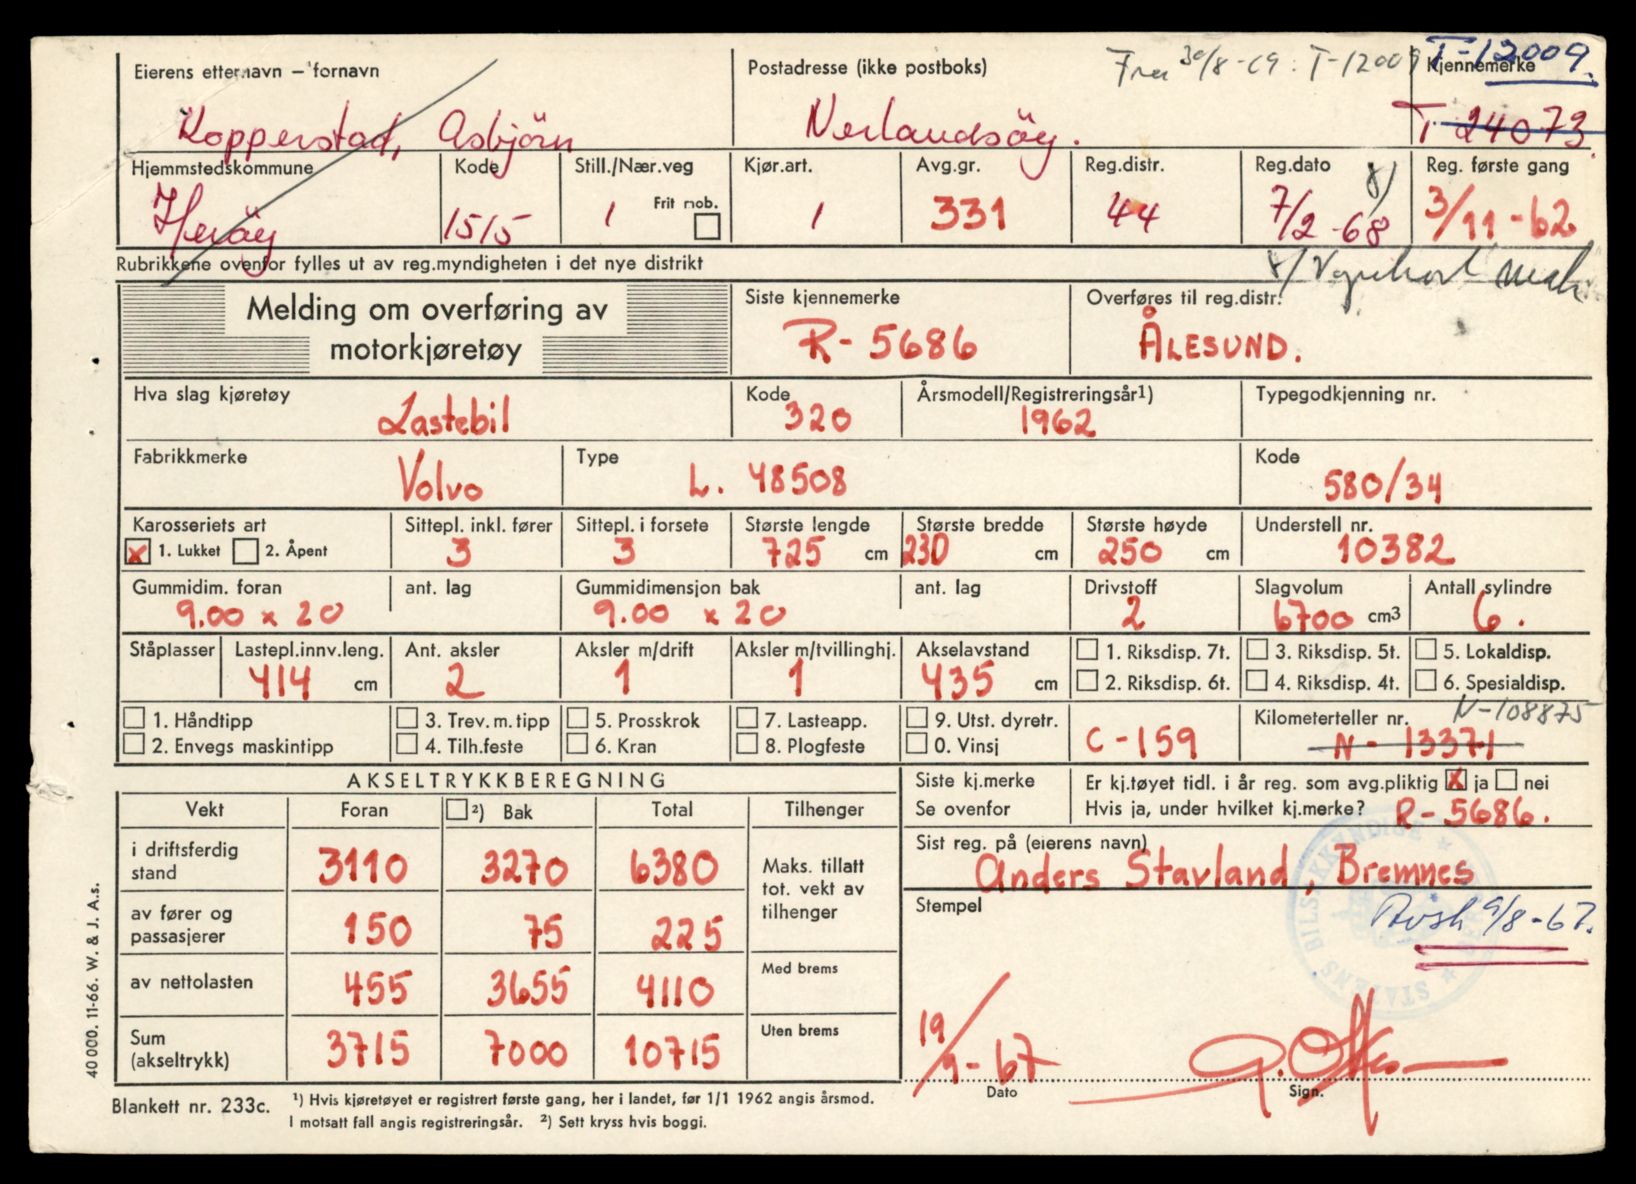 Eierens etternavn – fornavn
Postadresse (ikke postboks)
Fra 30/8-69: T-12009
Kjennemerke
T-12009.
Kopperstad, Asbjörn
Nerlandsöy.
T-24073.
Hjemmstedskommune
Kode
Still./Nær.veg
Kjør.art.
Avg.gr.
Reg.distr.
Reg.dato
Reg. første gang
Heröy
1515
1
Frit mob.
1
331
44
7/2-68
8)
3/11-62
Rubrikkene ovenfor fylles ut av reg.myndigheten i det nye distrikt
8) Vognkort
Melding om overføring av
motorkjøretøy
Siste kjennemerke
R-5686
Overføres til reg.distr.
ÅLESUND.
Hva slag kjøretøy
Lastebil
Kode
320
Årsmodell/Registreringsår1)
1962
Typegodkjenning nr.
Fabrikkmerke
Volvo
Type
L. 48508
Kode
580/34
Karosseriets art
Sittepl. inkl. fører
Sittepl. i forsete
Største lengde
Største bredde
Største høyde
Understell nr.
x 1. Lukket 2. Åpent
3
3
725 cm
230 cm
250 cm
10382
Gummidim. foran
ant. lag
Gummidimensjon bak
ant. lag
Drivstoff
Slagvolum
Antall sylindre
9.00 x 20
9.00 x 20
2
6700 cm3
6.
Ståplasser
Lastepl.innv.leng.
Ant. aksler
Aksler m/drift
Aksler m/tvillinghj.
Akselavstand
1. Riksdisp. 7t.
3. Riksdisp. 5t.
5. Lokaldisp.
414 cm
2
1
1
435 cm
2. Riksdisp. 6t.
4. Riksdisp. 4t.
6. Spesialdisp.
1. Håndtipp
3. Trev. m. tipp
5. Prosskrok
7. Lasteapp.
9. Utst. dyretr.
C-159
Kilometerteller nr.
N-108875
2. Envegs maskintipp
4. Tilh.feste
6. Kran
8. Plogfeste
0. Vinsj
N-13371
AKSELTRYKKBEREGNING
Siste kj.merke
Er kj.tøyet tidl. i år reg. som avg.pliktig x ja nei
Se ovenfor
Hvis ja, under hvilket kj.merke? R-5686.
Vekt
Foran
2) Bak
Total
Tilhenger
i driftsferdig
stand
3110
3270
6380
Maks. tillatt
tot. vekt av
tilhenger
Sist reg. på (eierens navn)
Anders Stavland, Bremnes
av fører og
passasjerer
150
75
225
Stempel
9/8-67.
STATENS BILSAKKYNDIGE
av nettolasten
455
3655
4110
Med brems
Sum
(akseltrykk)
3715
7000
10715
Uten brems
19/9-67
Dato
Sign.
Blankett nr. 233c.
1) Hvis kjøretøyet er registrert første gang, her i landet, før 1/1 1962 angis årsmod.
I motsatt fall angis registreringsår. 2) Sett kryss hvis boggi.
40 000. 11-66. W. & J. A.s.